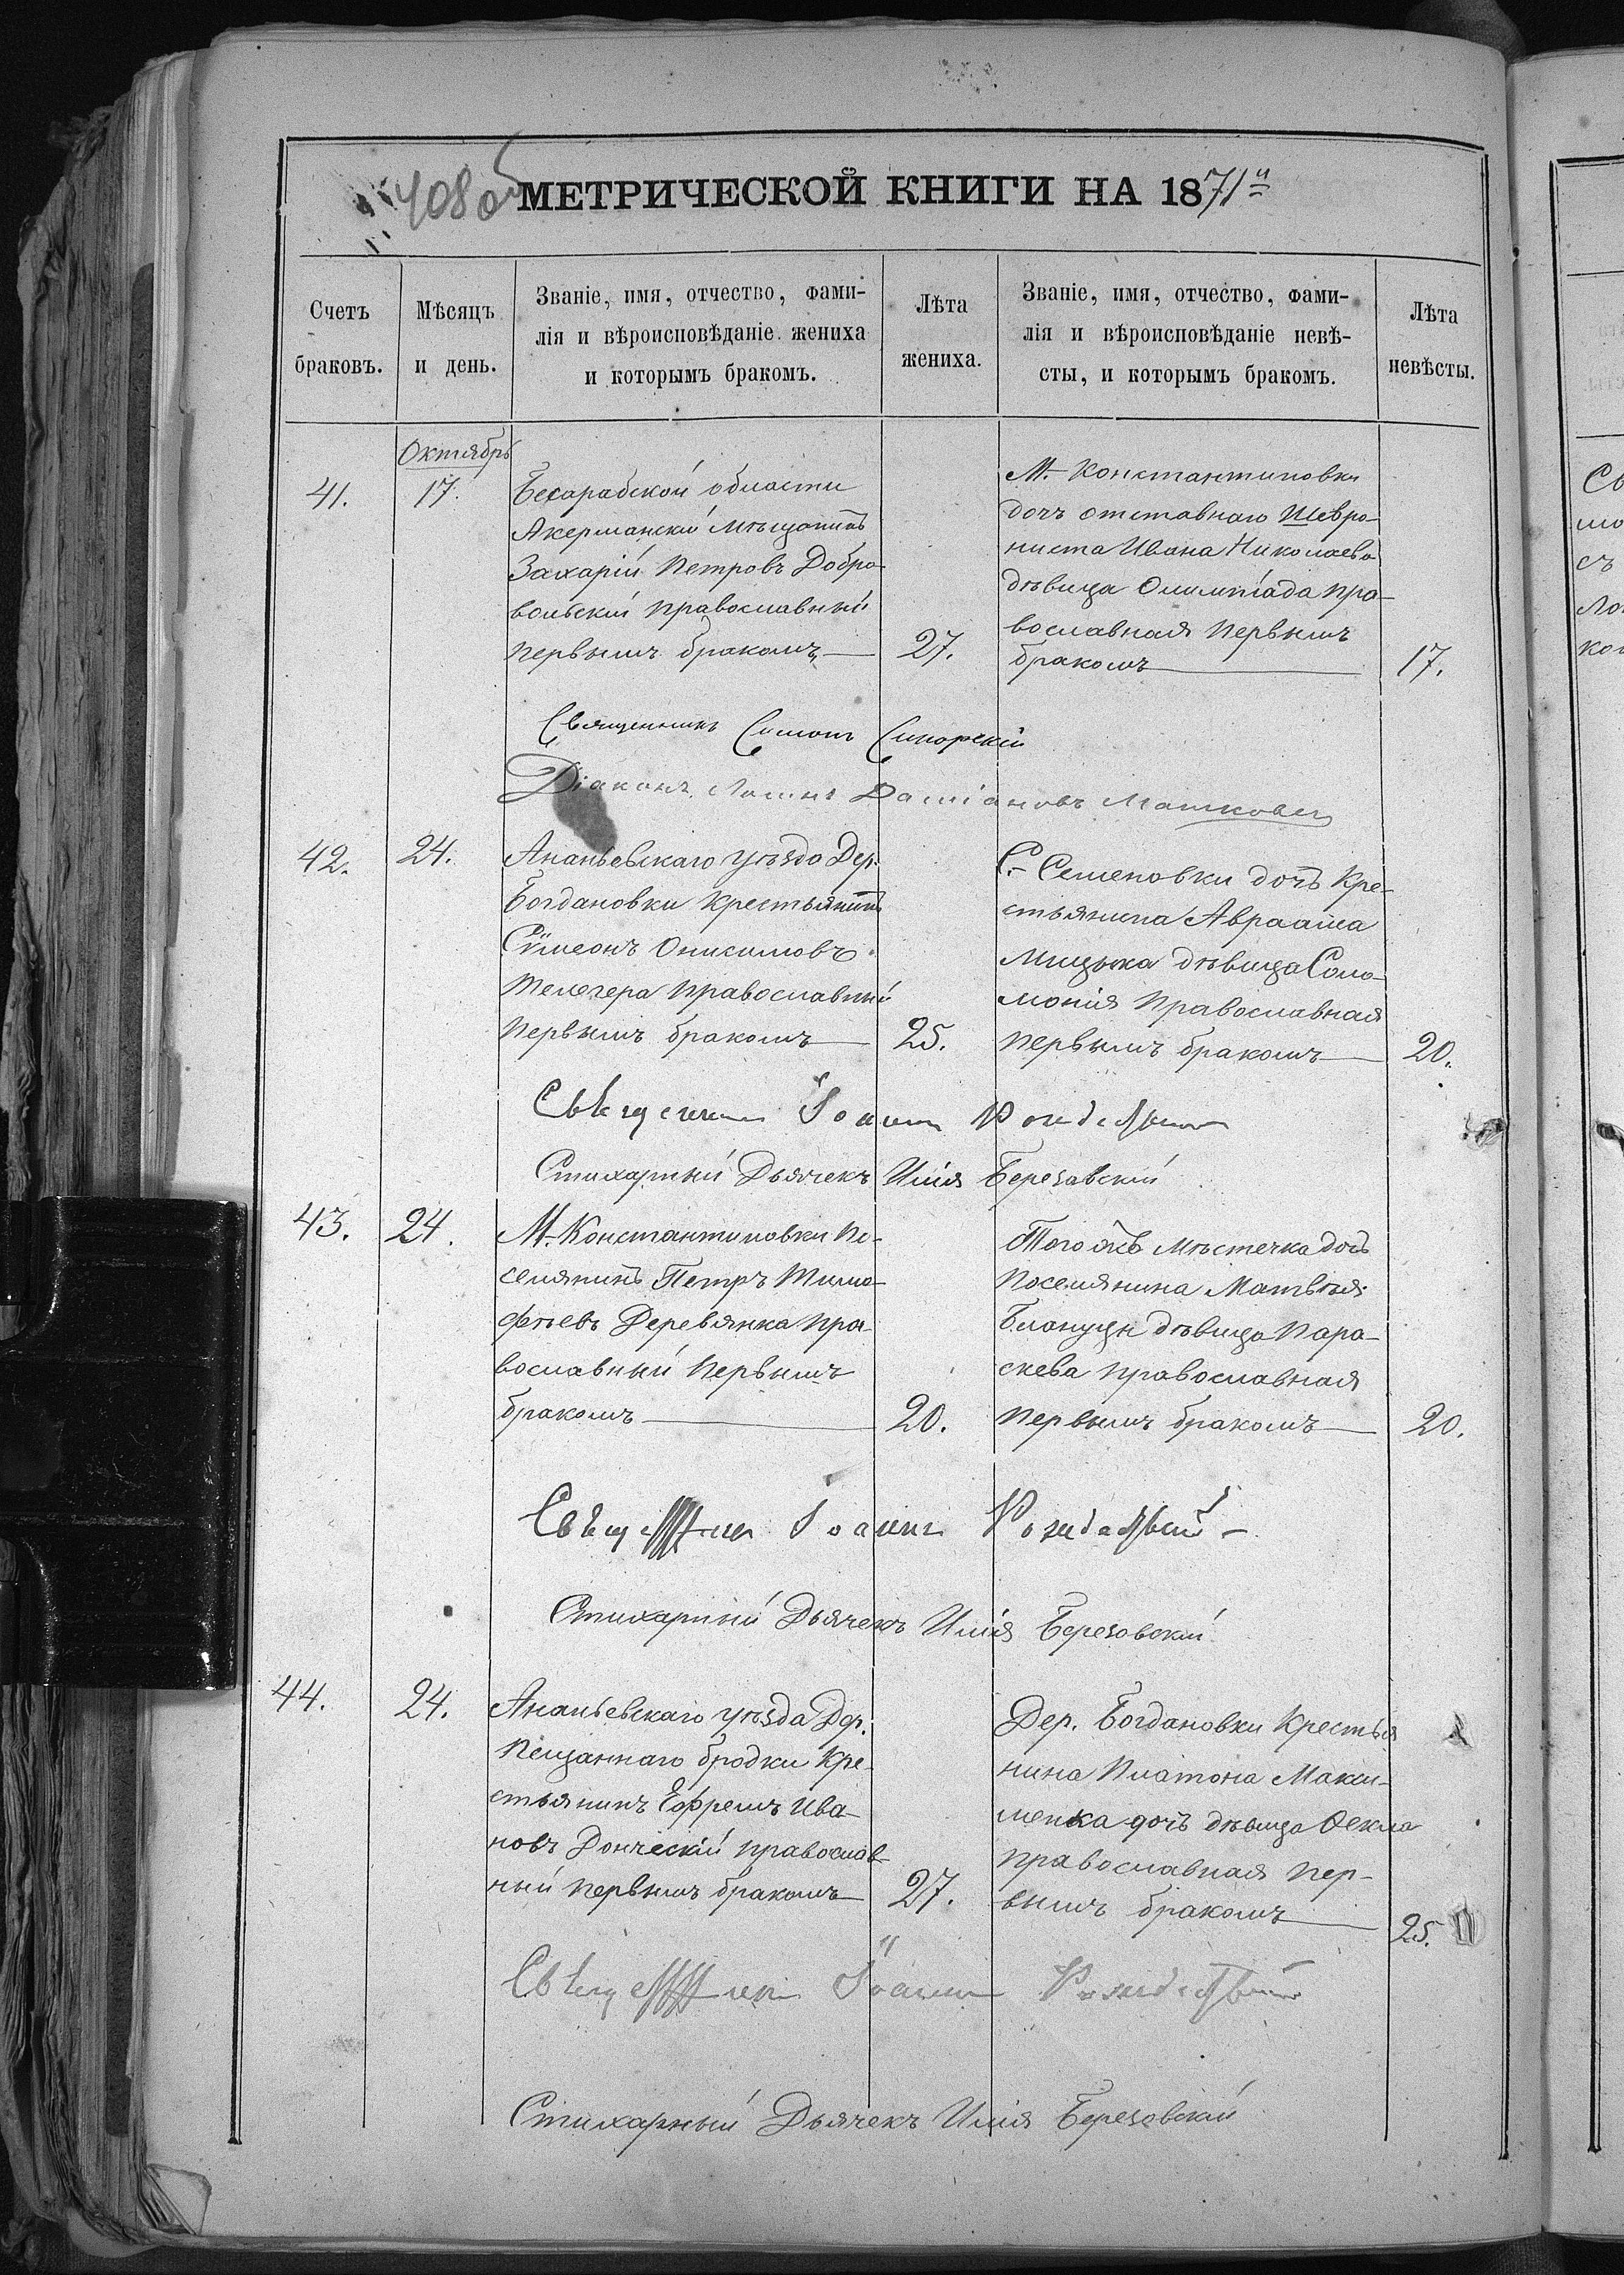 408 об
МЕТРИЧЕСКОЙ КНИГИ НА 1871й
Счетъ
браковъ.
Мѣсяцъ
и день.
Званіе, имя, отчество, фами-
лія и вѣроисповѣданіе жениха
и которымъ бракомъ.
Лѣта
жениха.
Званіе, имя, отчество, фами-
лія и вѣроисповѣданіе невѣ-
сты, и которымъ бракомъ.
Лѣта
невѣсты.
Октябрь
41.
17.
Бесарабской области
Акерманскій Мѣщанинъ
Захарій Петровъ Добро-
вольскій православный
первымъ бракомъ
27.
М. Константиновки
дочь отставнаго Шевро-
ниста Ивана Николаева
дѣвица Олимпіада пра-
вославная первымъ
бракомъ
17.
Священникъ Симонъ
Діаконъ Даміановъ
42.
24.
Ананьевскаго уѣзда Дер.
Богдановки крестьянинъ
Сѵмеонъ Онисимовъ
Телегера православный
первымъ бракомъ
25.
С. Семеновки дочь кре-
стьянина Авраама
Мицька дѣвица Соло-
монія православная
первымъ бракомъ
20.
Іоаннъ
Стихарный Дьячекъ Илія Березовскій
43.
24.
М. Константиновки по-
селянинъ Петръ Тимо-
фѣевъ Деревянка пра-
вославный первымъ
бракомъ
20.
Того жъ мѣстечка дочь
поселянина Матвѣя
дѣвица Пара-
скева православная
первымъ бракомъ
20.
Іоаннъ
Стихарный Дьячекъ Илія Березовскій
44.
24.
Ананьевскаго уѣзда Дер.
Пещаннаго бродки кре-
стьянинъ Ефремъ Ива-
новъ Донческій православ-
ный первымъ бракомъ
27.
Дер. Богдановки крестья
нина Платона Макси-
менка дочь дѣвица Ѳекла
православная пер-
вымъ бракомъ
25.
Іоаннъ
Стихарный Дьячекъ Илія Березовскій